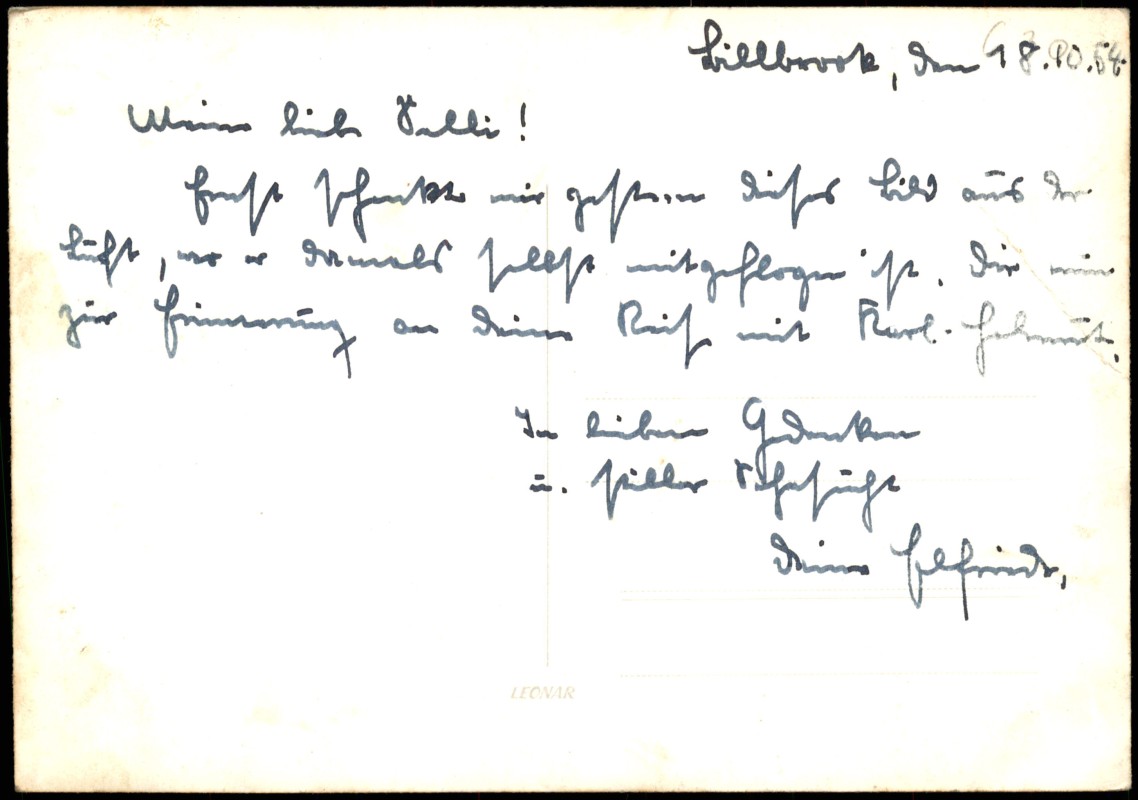 Billbrook, den 18.10.54.
Meine liebe Velli!
Ernst schenkte mir gestern dieses Bild aus der
Luft, wo er damals selbst mitgeflogen ist. Dir nun
zur Erinnerung an Deine Reise mit Karl-Helmut.
In lieben Gedenken
u. stiller Sehnsucht
Deine Elfriede,
LEONAR